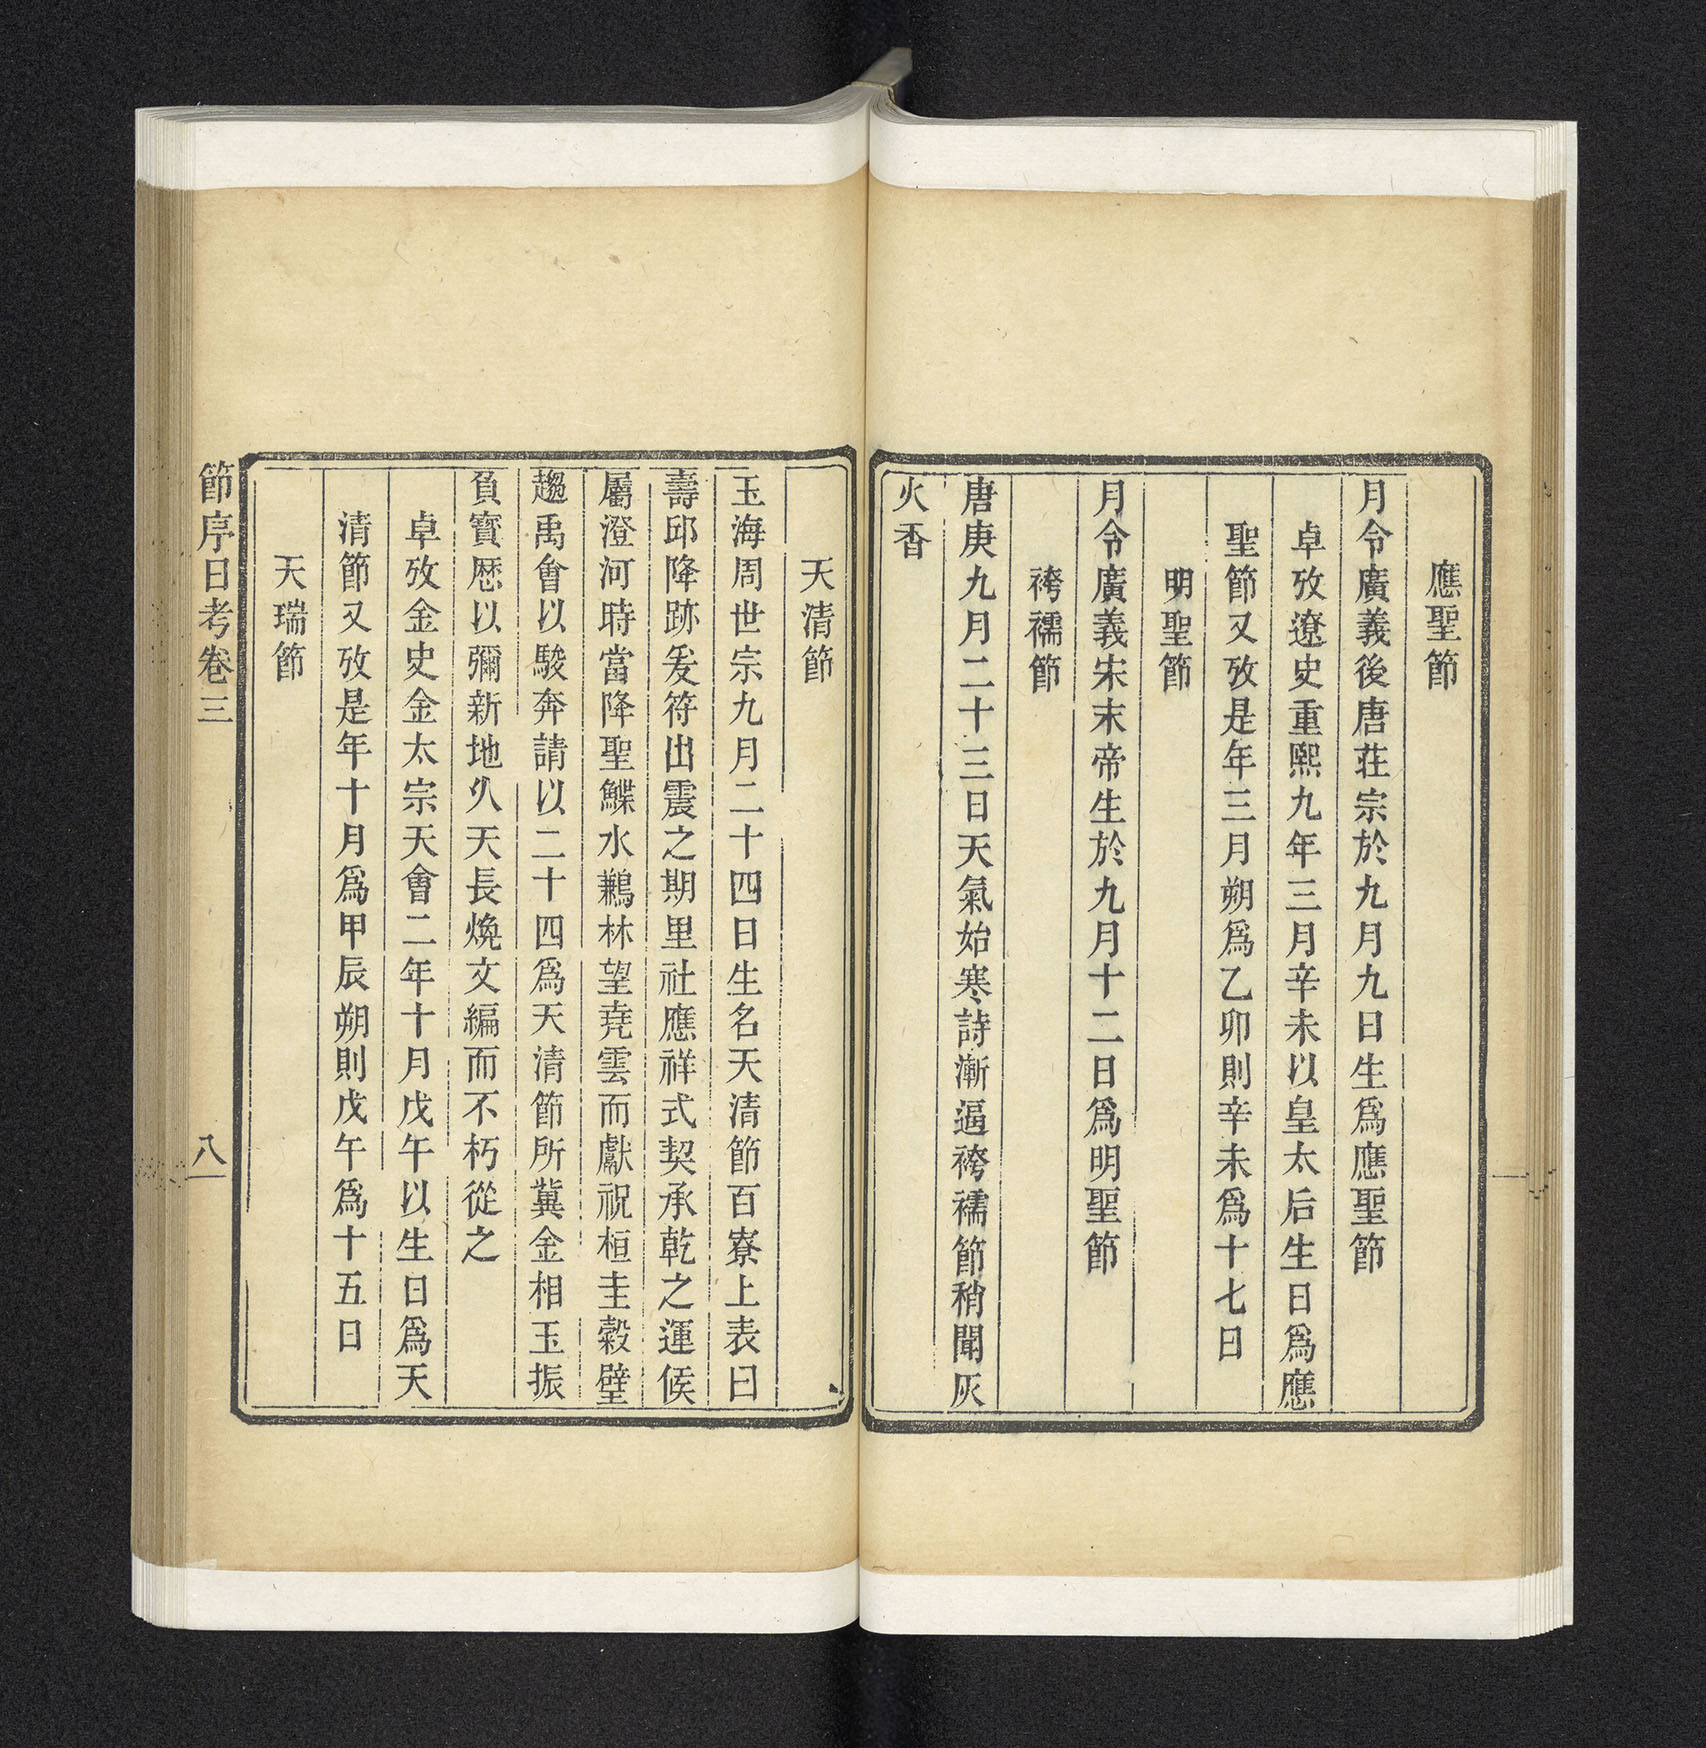 應聖節
月令廣義後唐莊宗於九月九日生爲應聖節
卓攷遼史重熙九年三月辛未以皇太后生日爲應
聖節又攷是年三月朔爲乙卯則辛未爲十七日
明聖節
月令廣義宋末帝生於九月十二日爲明聖節
袴襦節
唐庚九月二十三日天氣始寒詩漸逼袴襦節稍聞灰
火香
天清節
玉海周世宗九月二十四日生名天清節百寮上表曰
壽邱降跡爰符出震之期里社應祥式契承乾之運候
屬澄河時當降聖鰈水鶼林望堯雲而獻祝桓圭穀璧
趨禹會以駿奔請以二十四爲天清節所冀金相玉振
負寶歷以彌新地久天長煥文編而不朽從之
卓攷金史金太宗天會二年十月戊午以生日爲天
清節又攷是年十月爲甲辰朔則戊午爲十五日
天瑞節
節序日考卷三
八